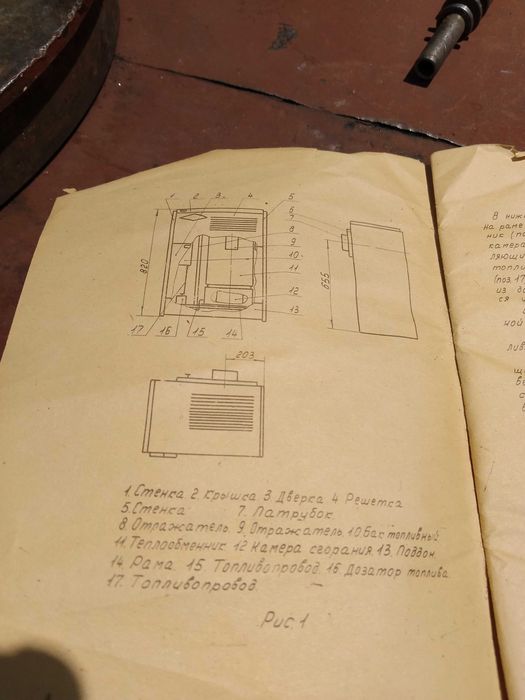 1 2 3 4 5
6
7
8
9
10
11
12
13
820
655
17 16 15 14
203
1. Стенка 2. Крышка 3 Дверка 4 Решетка
5. Стенка 7. Патрубок
8 Отражатель. 9 Отражатель. 10. Бак топливный
11 Теплообменник 12 Камера сгорания. 13 Поддон.
14 Рама 15 Топливопровод. 16. Дозатор топлива
17. Топливопровод.
Рис. 1
В ниж
на раме
ник (по
камера
ляющи
топли
(поз. 17
из ба
ся
ной
лив